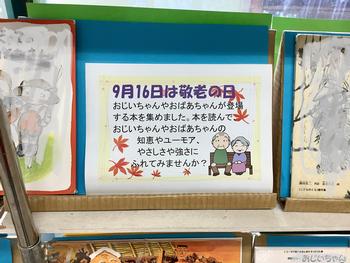 9月16日は敬老の日
おじいちゃんやおばあちゃんが登場
する本を集めました。本を読んで
おじいちゃんやおばあちゃんの
知恵やユーモア、
やさしさや強さに
ふれてみませんか？
おじいちゃん